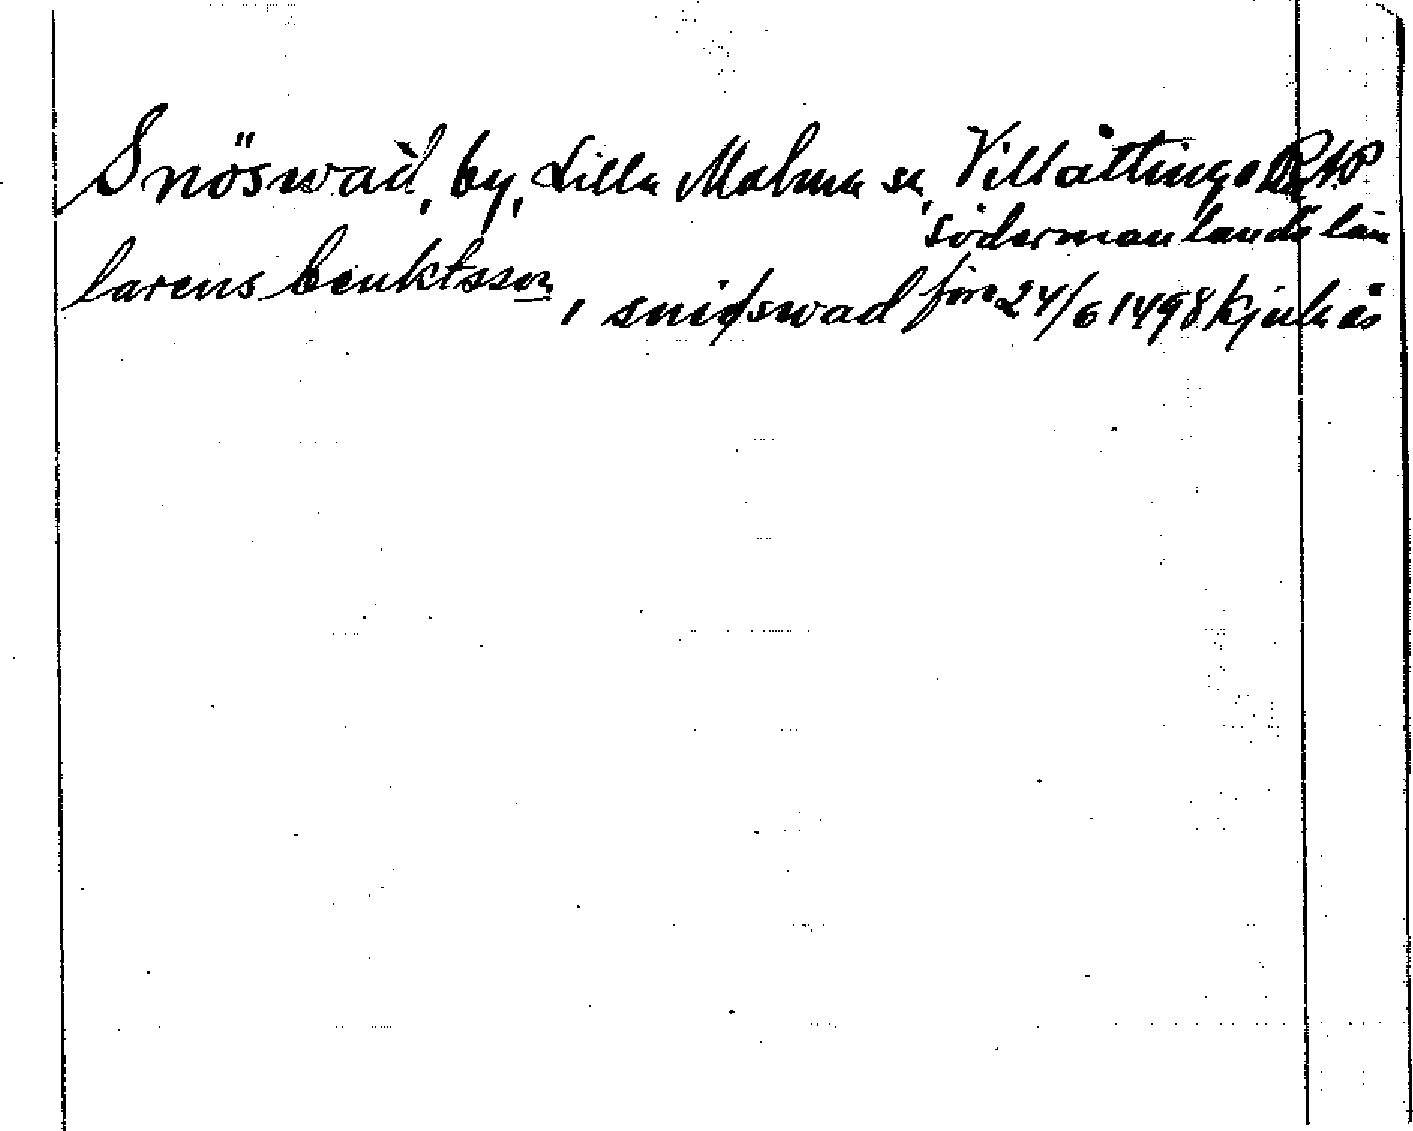 Snöswad, by, Lilla Malma sn, Villåttinge RAP
södermanlands län
larens benktsson, i snidswad före 24/6 1498 Kjulaås